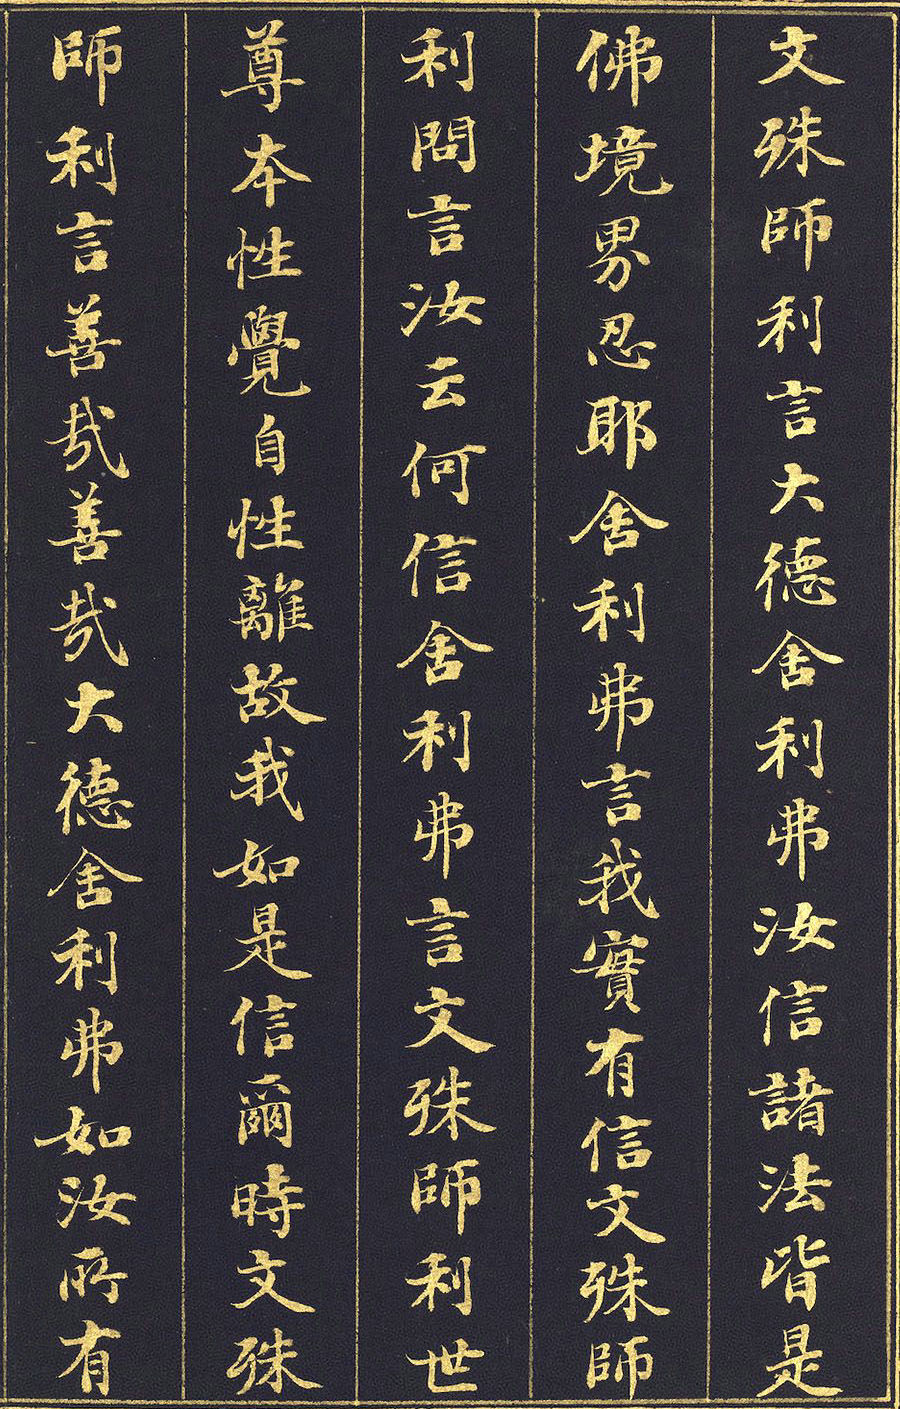 文殊師利言大德舍利弗汝信諸法皆是
佛境界忍耶舍利弗言我實有信文殊師
利問言汝云何信舍利弗言文殊師利世
尊本性覺自性離故我如是信爾時文殊
師利言善哉善哉大德舍利弗如汝所有